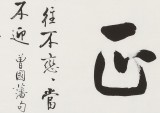 往不戀、當
不迎 曾國藩句